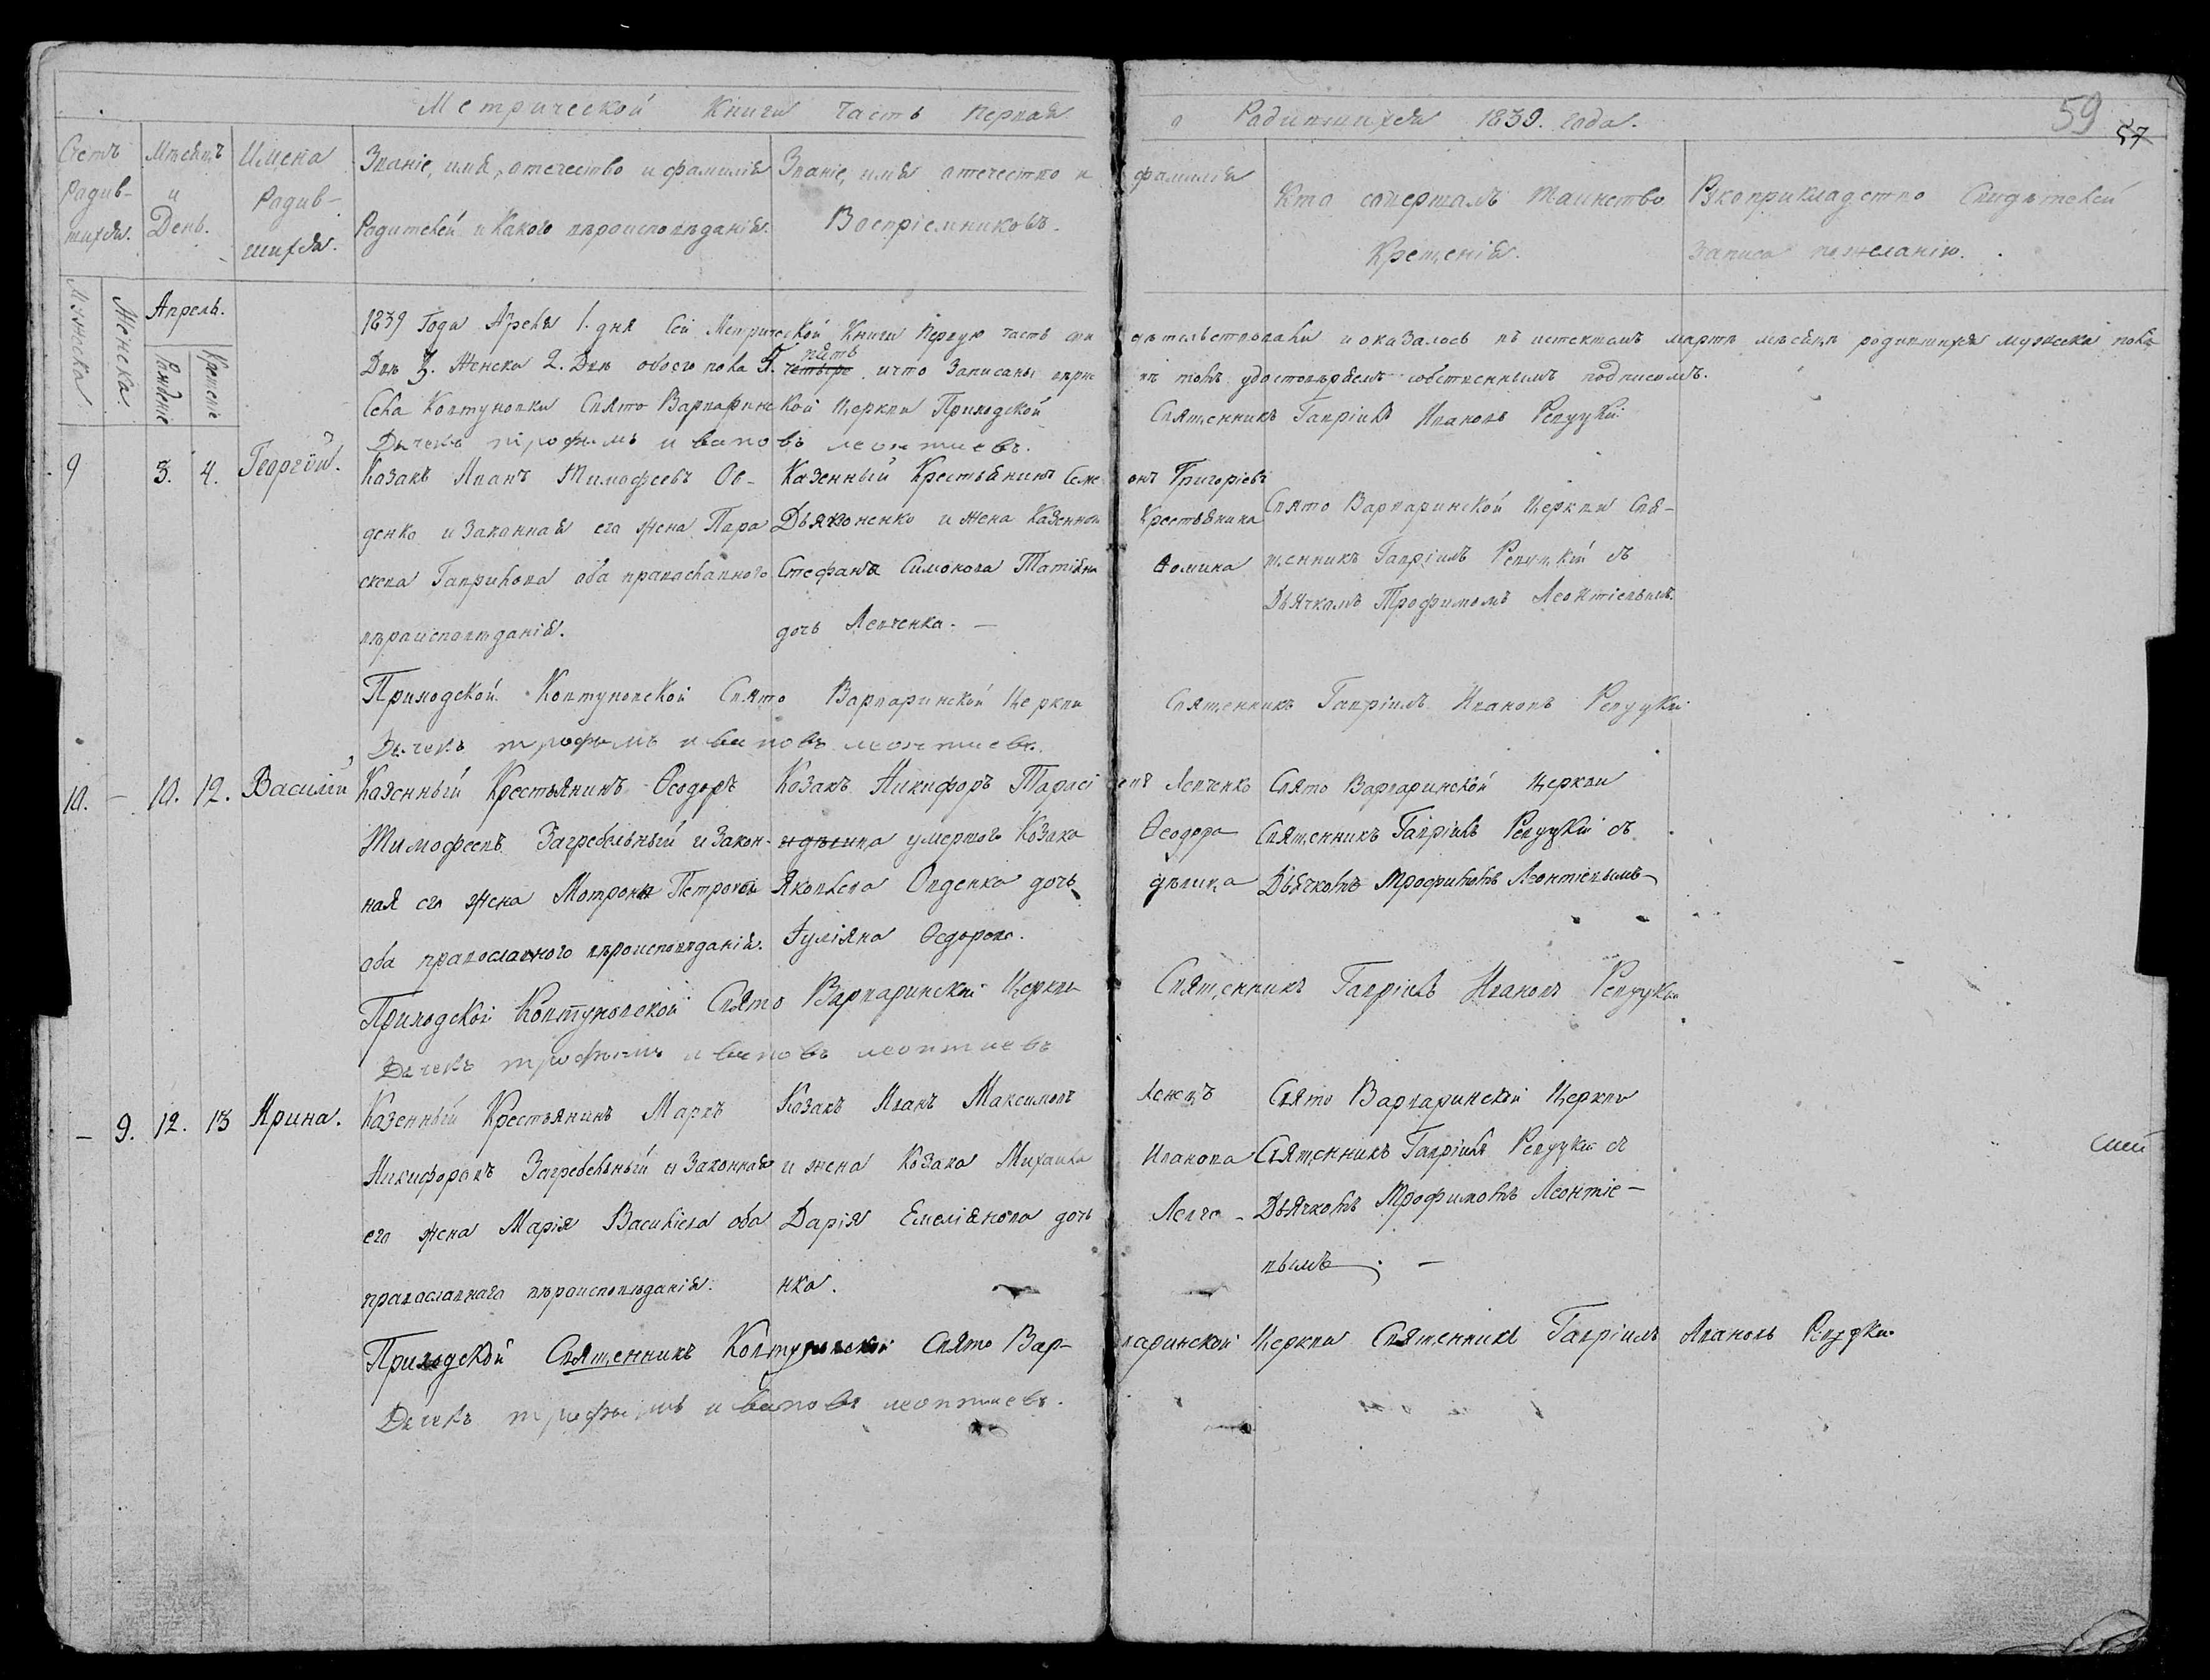 Метрической Книги часть первая о Родившихся 1839. года.
59
57
Счетъ Родив-шихся.
Мѣсяцъ и День.
Имена Родив-шихся.
Званіе, имя, отечество и фамилія Родителей и какого вѣроисповѣданія.
Званіе, имя отечество и фамилія Воспріемниковъ.
Кто совершалъ таинство Крещенія.
Рукоприкладство Свидѣтелей записа по желанію.
Мужеска
Женска.
Апрель.
Рожденіе
Крещеніе
1839 Года Апреля 1. дня Сей Метрической Книги Первую часть свидѣтельствовали и оказалось въ истекшомъ мартѣ мѣсяцѣ родившихся мужеска пола
Двѣ 3. Женска 2. Двѣ обоего пола 5. четыре пять и что Записаны вѣрно въ томъ удостовѣряемъ собственнымъ подписомъ.
СелаКовтуновки Свято Варваринской Церкви Приходской Священникъ Гавріилъ Ивановъ Репуцкій
Дьячекъ трофимъ ивановъ леонтиевъ.
9 3. 4. Георгій.
Козакъ Иванъ Тимофеевъ Ов-
денко и Законная его жена Пара
скева Гаврилова оба православного
вѣроисповѣданія.
Казенный Крестьянинъ Семенъ Григоріевъ
Дьяконенко и жена Казенного Крестьянина
Стефана Симонова Татіяна Фомина
дочь Левченка. —
Свято Варваринской Церкви Свя-
щенникъ Гавріилъ Репуцкій съ
Дьячкомъ Трофимомъ Леонтіевымъ.
Приходской Ковтуновской Свято Варваринской Церкви Священникъ Гавріилъ Ивановъ Репуцкій
Дьячекъ трофимъ ивановъ леонтиевъ.
10. — 10. 12. Василій
Казенный Крестьянинъ Феодоръ
Тимофеевъ Загребельный и Закон-
ная его жена Мотрона Петрова
оба православного вѣроисповѣданія.
Козакъ Никифоръ Тарасіевъ Левченко
и дѣвица умершого Козака Феодора
Яковлева Овденка дочь дѣвица
Іуліяна Федорова.
Свято Варваринской Церкви
Священникъ Гавріилъ Репуцкій съ
Дьячкомъ Трофимомъ Леонтіевымъ
Приходской Ковтуновской Свято Варваринской Церкви Священникъ Гавріилъ Ивановъ Репуцкій
Дьячекъ трофимъ ивановъ леонтиевъ
— 9. 12. 13 Ирина.
Казенный Крестьянинъ Маркъ
Никифоровъ Загребельный и Законная
его жена Марія Васильева оба
православного вѣроисповѣданія.
Козакъ Иванъ Максимовъ
и жена Козака Михаила Иванова
Дарія Емеліянова дочь Левче-
нка.
Свято Варваринской Церкви
Священникъ Гавріилъ Репуцкій съ
Дьячкомъ Трофимомъ Леонтіе-
вымъ. —
Приходской Священникъ Ковтуновской Свято Варваринской Церкви Священникъ Гавріилъ Ивановъ Репуцкій
Дьячекъ трофимъ ивановъ леонтиевъ.